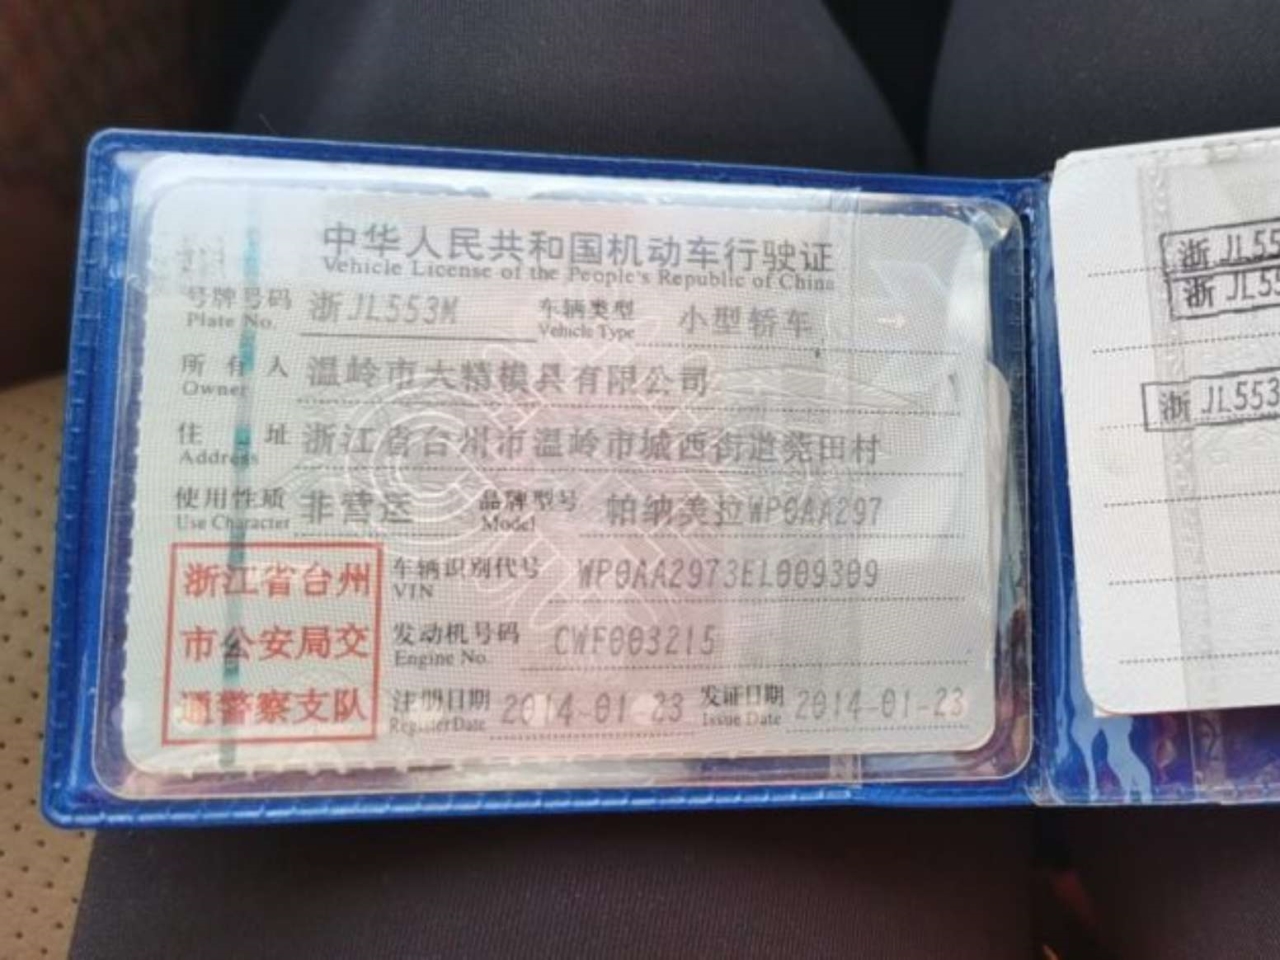 中华人民共和国机动车行驶证
Vehicle License of the People's Republic of China
号牌号码 浙JL553M 车辆类型 小型轿车
Plate No. Vehicle Type
所有人 温岭市大精模具有限公司
Owner
住址 浙江省台州市温岭市城西街道莞田村
Address
使用性质 非营运 品牌型号 帕纳美拉WP0AA297
Use Character Model
车辆识别代号 WP0AA2973EL009309
VIN
发动机号码 CWF003215
Engine No.
注册日期 2014-01-23 发证日期 2014-01-23
Register Date Issue Date
浙江省台州
市公安局交
通警察支队
浙JL55
浙JL55
浙JL553